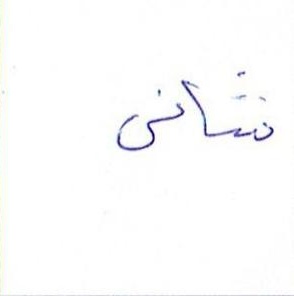 نشانی